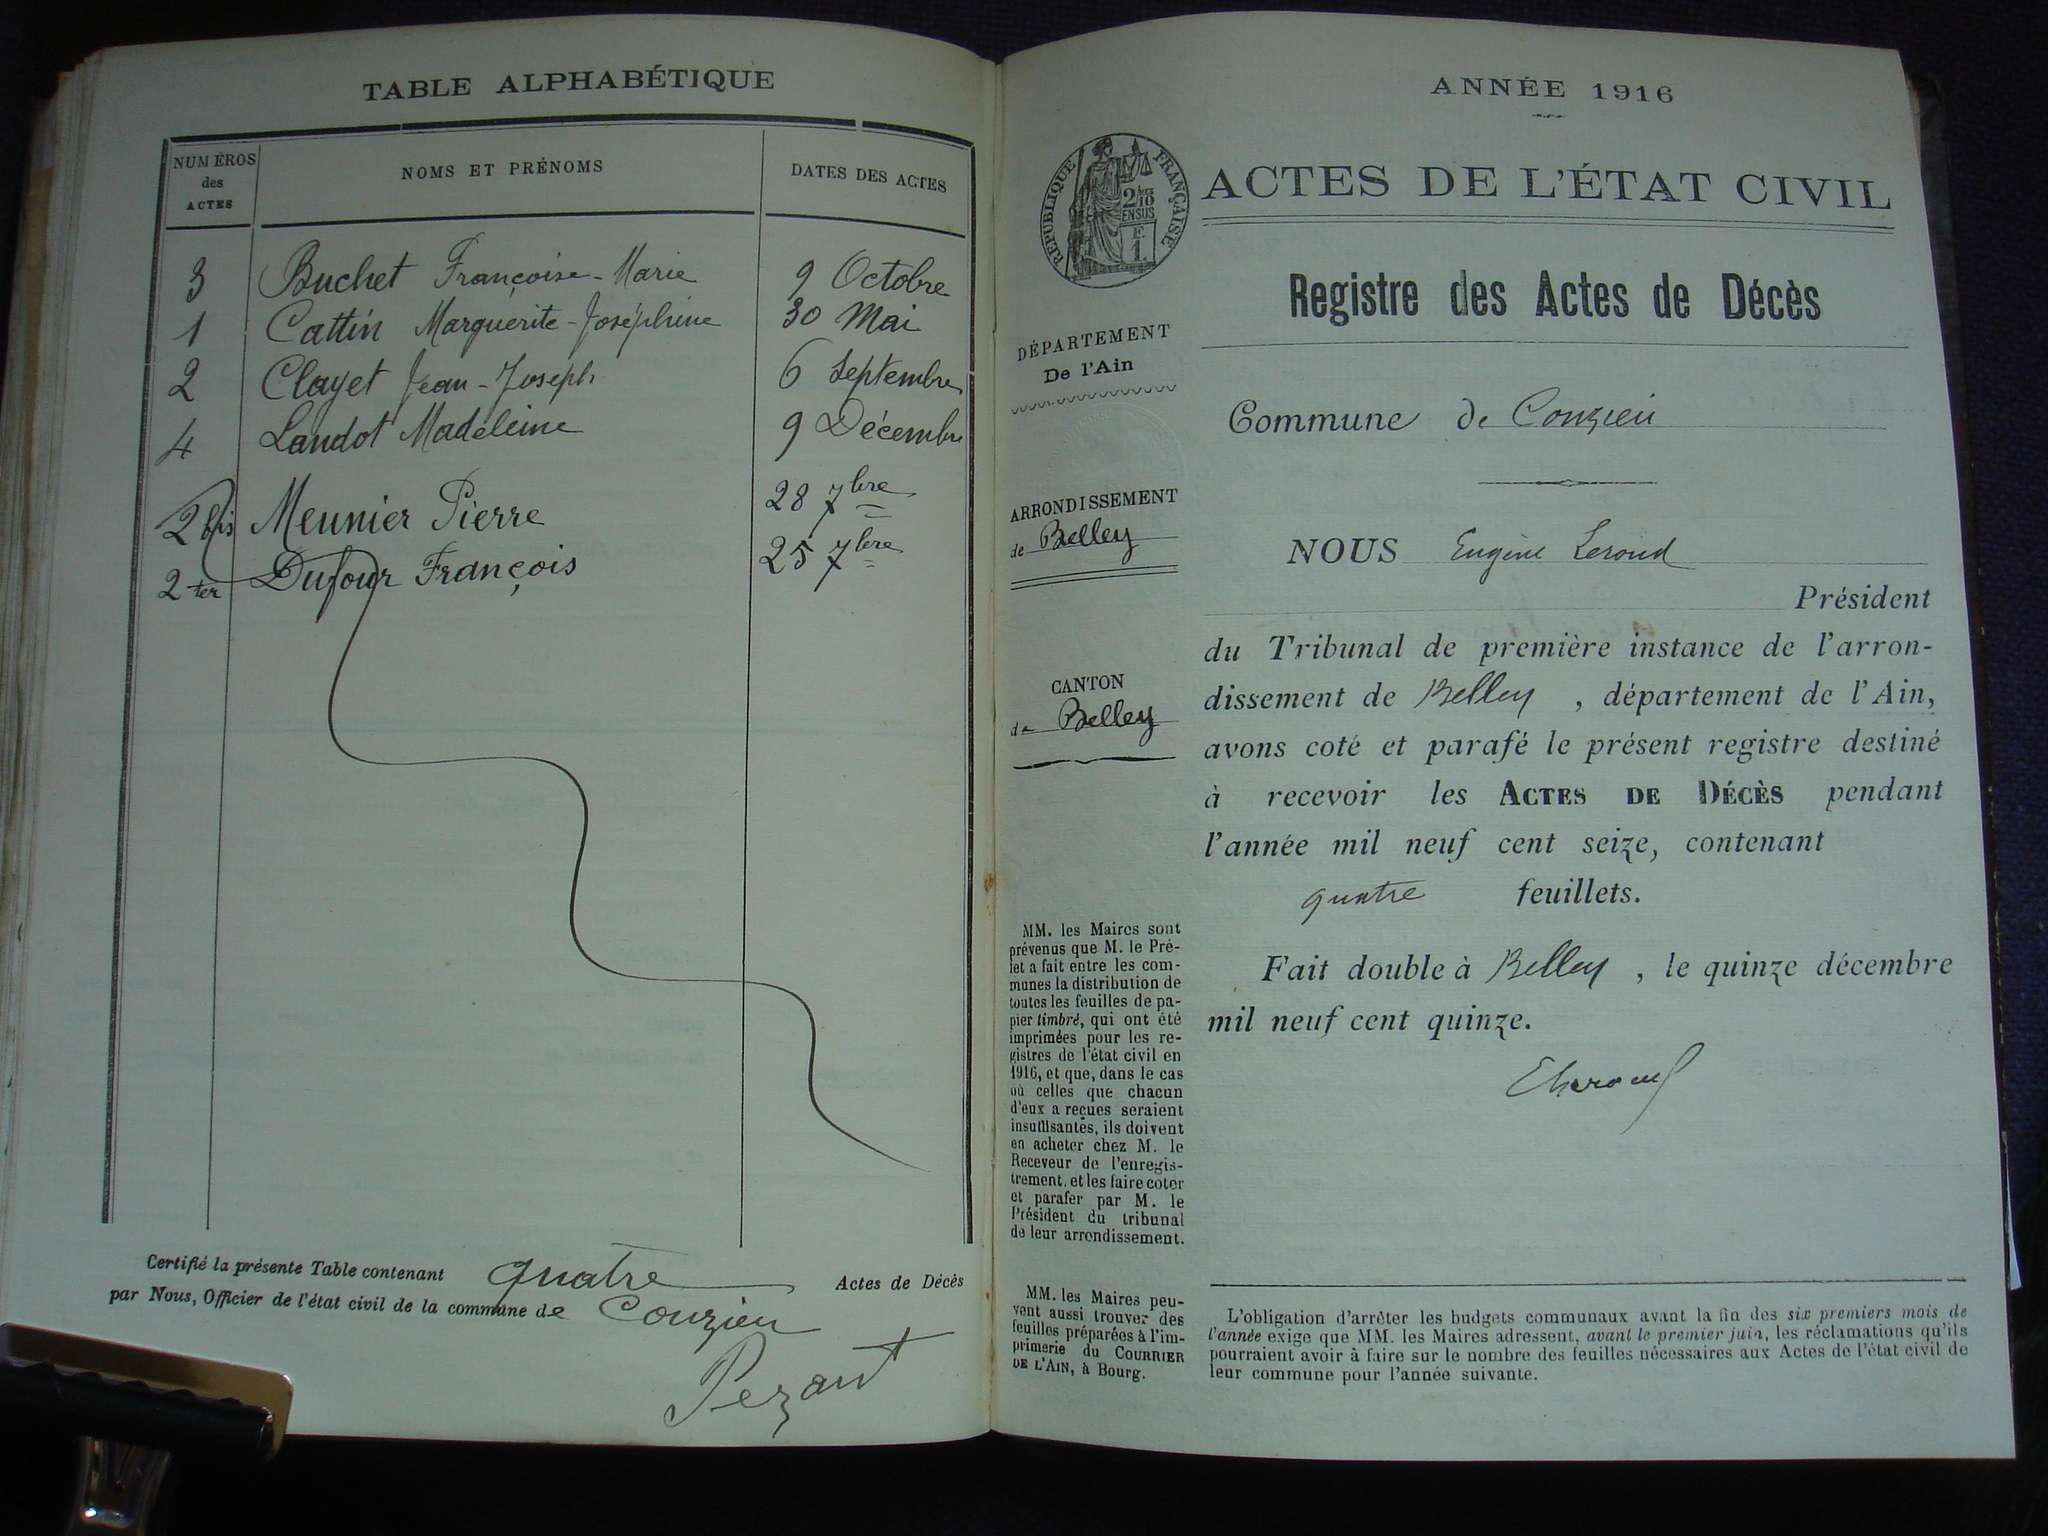 TABLE ALPHABÉTIQUE
NUMÉROS des ACTES
NOMS ET PRÉNOMS
DATES DES ACTES
3 Buchet Françoise-Marie 9 Octobre
1 Cattin Marguerite-Joséphine 30 Mai
2 Clayet Jean-Joseph 6 Septembre
4 Landot Madeleine 9 Décembre
2 bis Meunier Pierre 28 7bre
2 ter Dufour François 25 7bre
Certifié la présente Table contenant quatre Actes de Décès
par Nous, Officier de l'état civil de la commune de Conzieu
Pezant
ANNÉE 1916
RÉPUBLIQUE FRANÇAISE
2/10
EN SUS
F.
1.
ACTES DE L'ÉTAT CIVIL
Registre des Actes de Décès
DÉPARTEMENT
De l'Ain
Commune de Conzieu
ARRONDISSEMENT
de Belley
NOUS Eugène Leroud
Président
du Tribunal de première instance de l'arron-
dissement de Belley, département de l'Ain,
avons coté et parafé le présent registre destiné
à recevoir les ACTES DE DÉCÈS pendant
l'année mil neuf cent seize, contenant
quatre feuillets.
Fait double à Belley, le quinze décembre
mil neuf cent quinze.
CANTON
de Belley
MM. les Maires sont
prévenus que M. le Pré-
fet a fait entre les com-
munes la distribution de
toutes les feuilles de pa-
pier timbré, qui ont été
imprimées pour les re-
gistres de l'état civil en
1916, et que, dans le cas
où celles que chacun
d'eux a reçues seraient
insuffisantes, ils doivent
en acheter chez M. le
Receveur de l'enregis-
trement, et les faire coter
et parafer par M. le
Président du tribunal
de leur arrondissement.
MM. les Maires peu-
vent aussi trouver des
feuilles préparées à l'im-
primerie du COURRIER
DE L'AIN, à Bourg.
L'obligation d'arrêter les budgets communaux avant la fin des six premiers mois de
l'année exige que MM. les Maires adressent, avant le premier juin, les réclamations qu'ils
pourraient avoir à faire sur le nombre des feuilles nécessaires aux Actes de l'état civil de
leur commune pour l'année suivante.